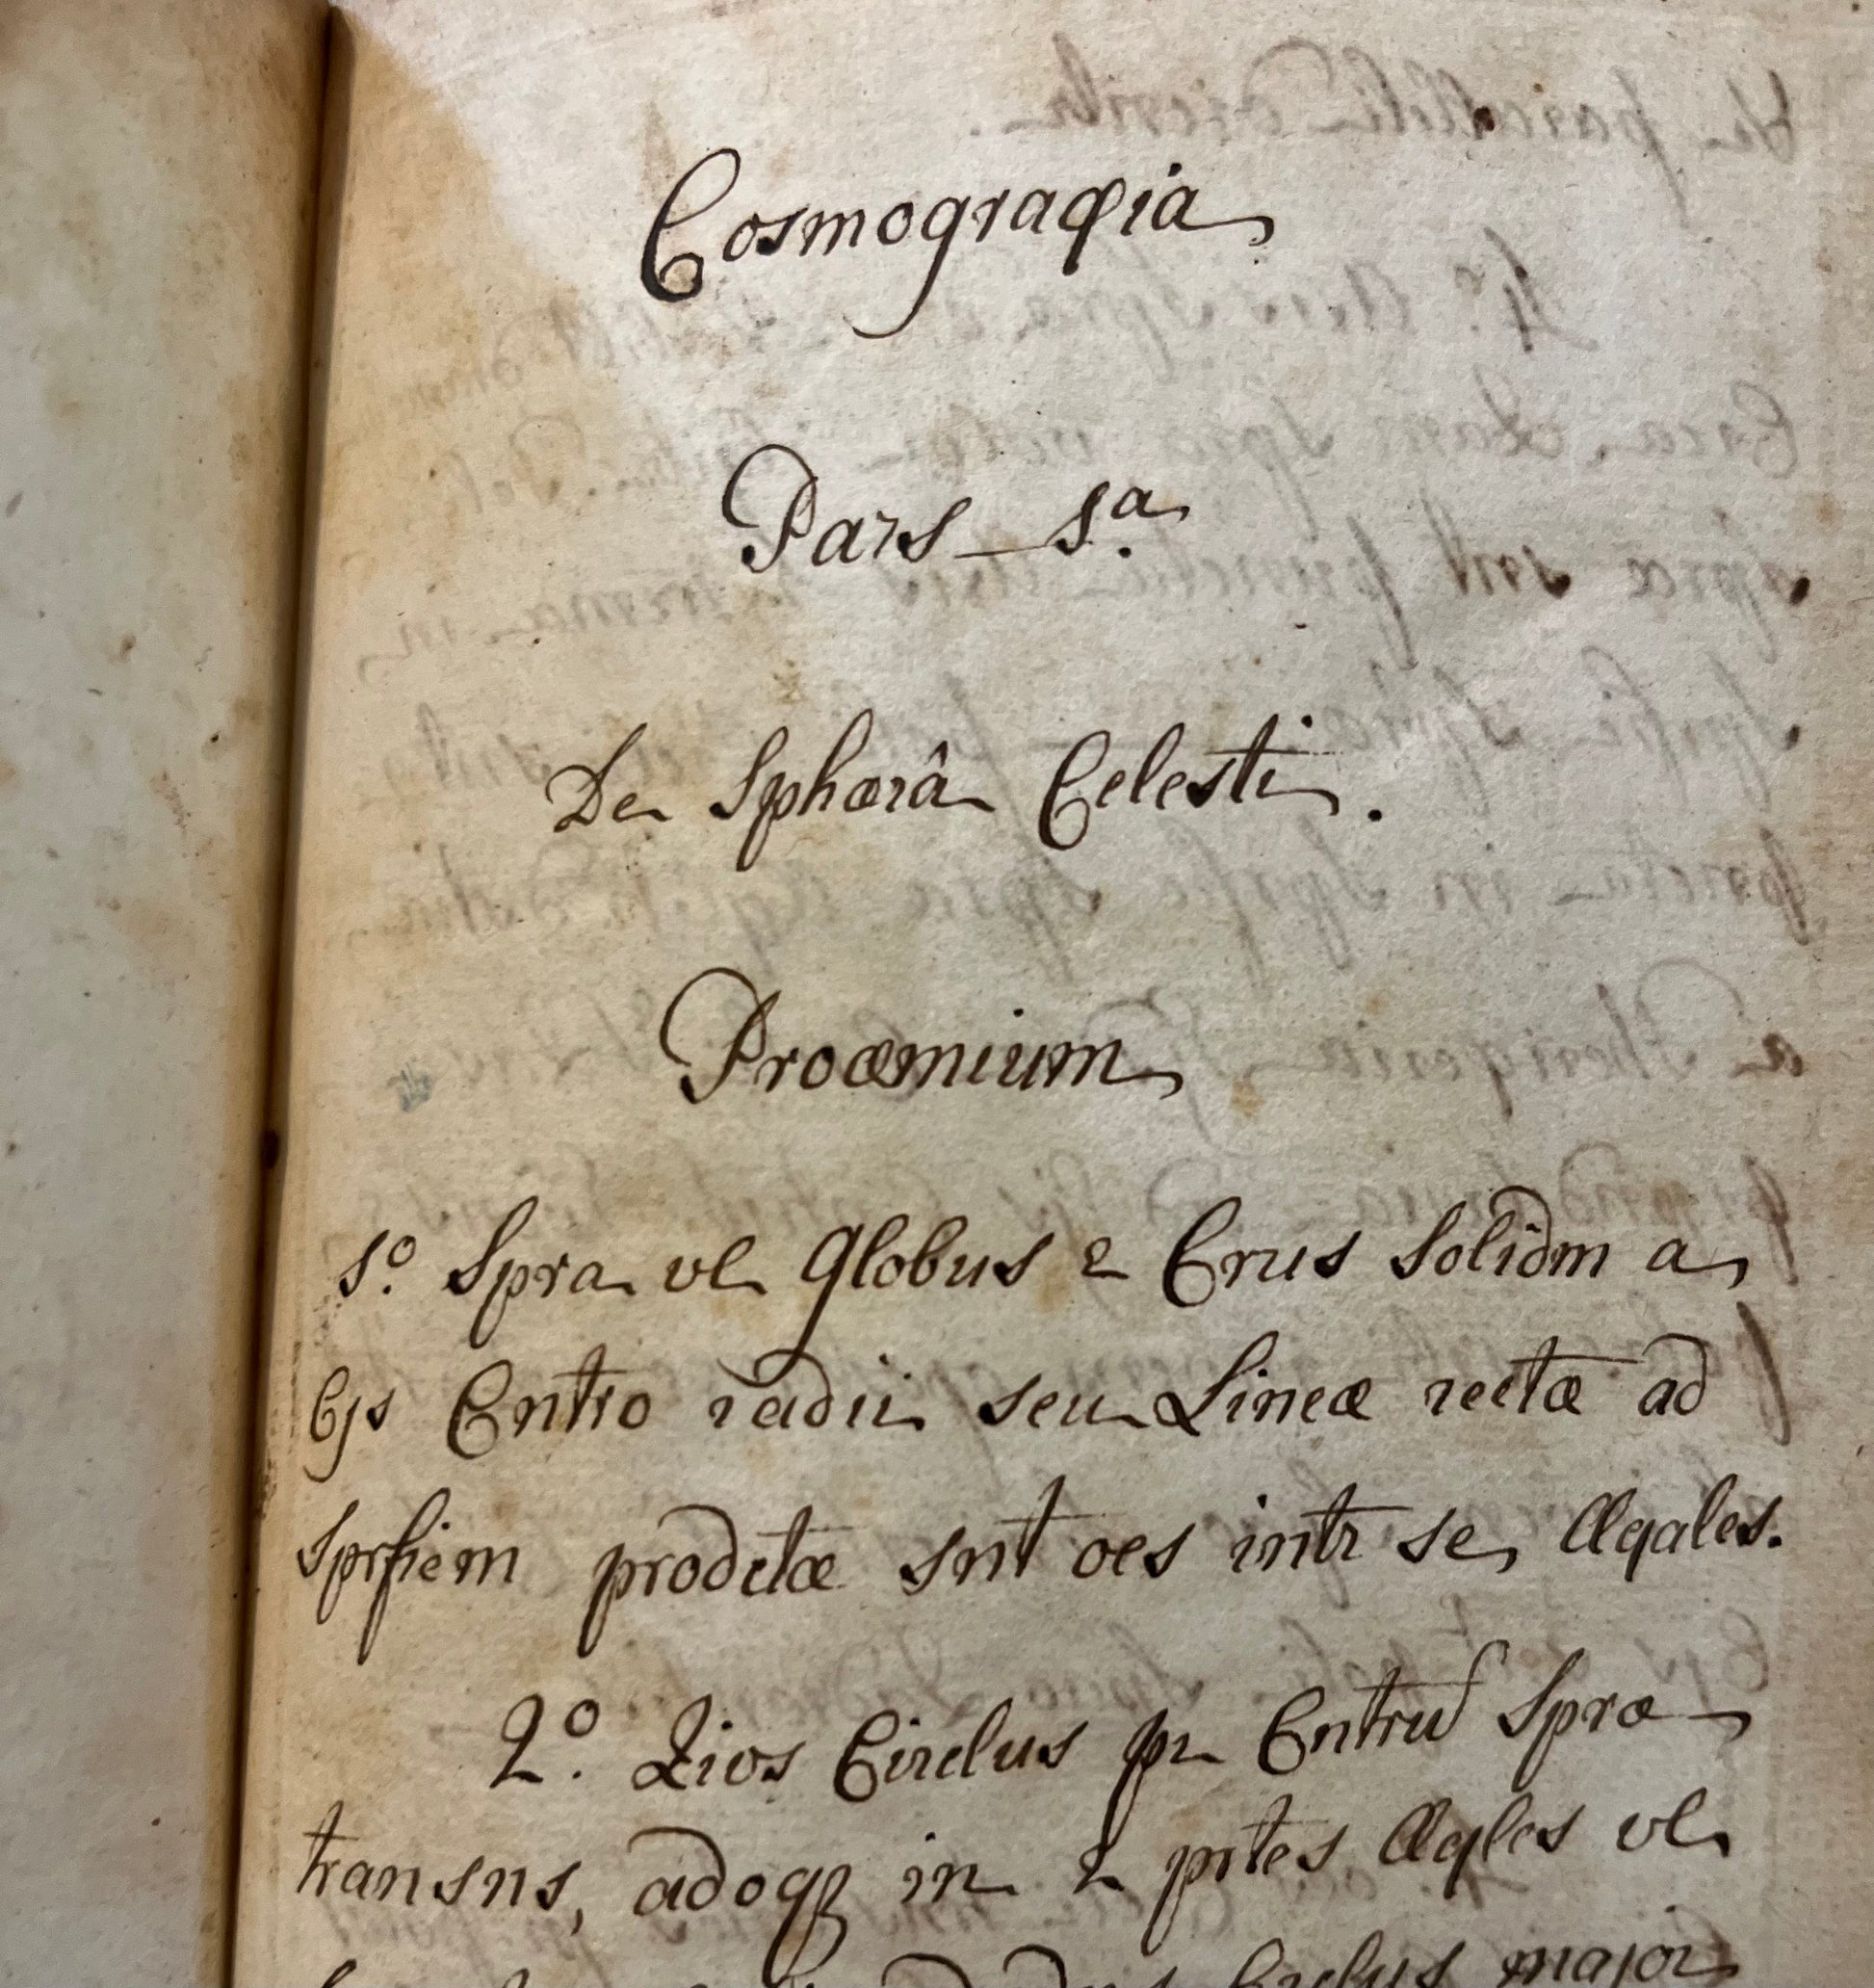 Cosmograφia
Pars 1.ª
De Sphærâ Celesti.
Proœmium
1.º Spra vl Globus 2 Crus Solidm a
Cjs Cntro radii seu Lineæ rectæ ad
Sprfiem prodctæ snt oes intr se Æqales.
2.º Circlus pr Cntrum Spræ
transns, adoq₃ in 2 prtes Æqles vl
Circlus major